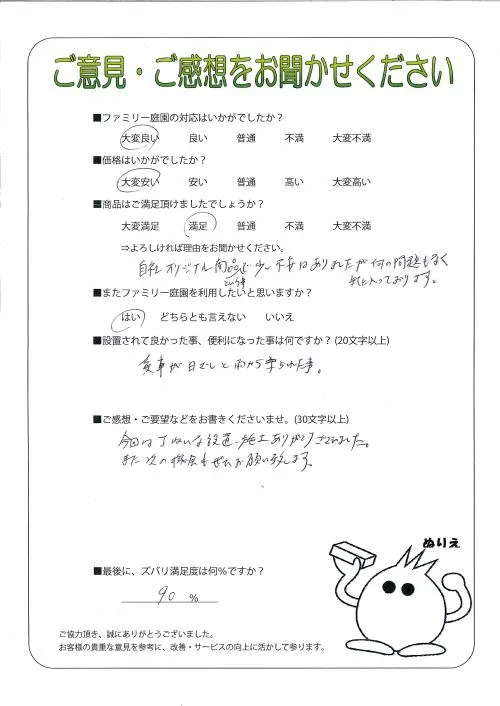 ご意見・ご感想をお聞かせください
■ファミリー庭園の対応はいかがでしたか？
大変良い 良い 普通 不満 大変不満
■価格はいかがでしたか？
大変安い 安い 普通 高い 大変高い
■商品はご満足頂けましたでしょうか？
大変満足 満足 普通 不満 大変不満
⇒よろしければ理由をお聞かせください。
自社オリジナル商品で少し不安はありましたが何の問題もなく
という事
気に入っております。
■またファミリー庭園を利用したいと思いますか？
はい どちらとも言えない いいえ
■設置されて良かった事、便利になった事は何ですか？(20文字以上)
愛車が日ざしと雨から守られた事。
■ご感想・ご要望などをお書きくださいませ。(30文字以上)
今回は丁ねいな設置、施工ありがとうございました。
また次の機会もぜひお願い致します。
ぬりえ
■最後に、ズバリ満足度は何％ですか？
90 ％
ご協力頂き、誠にありがとうございました。
お客様の貴重な意見を参考に、改善・サービスの向上に活かして参ります。